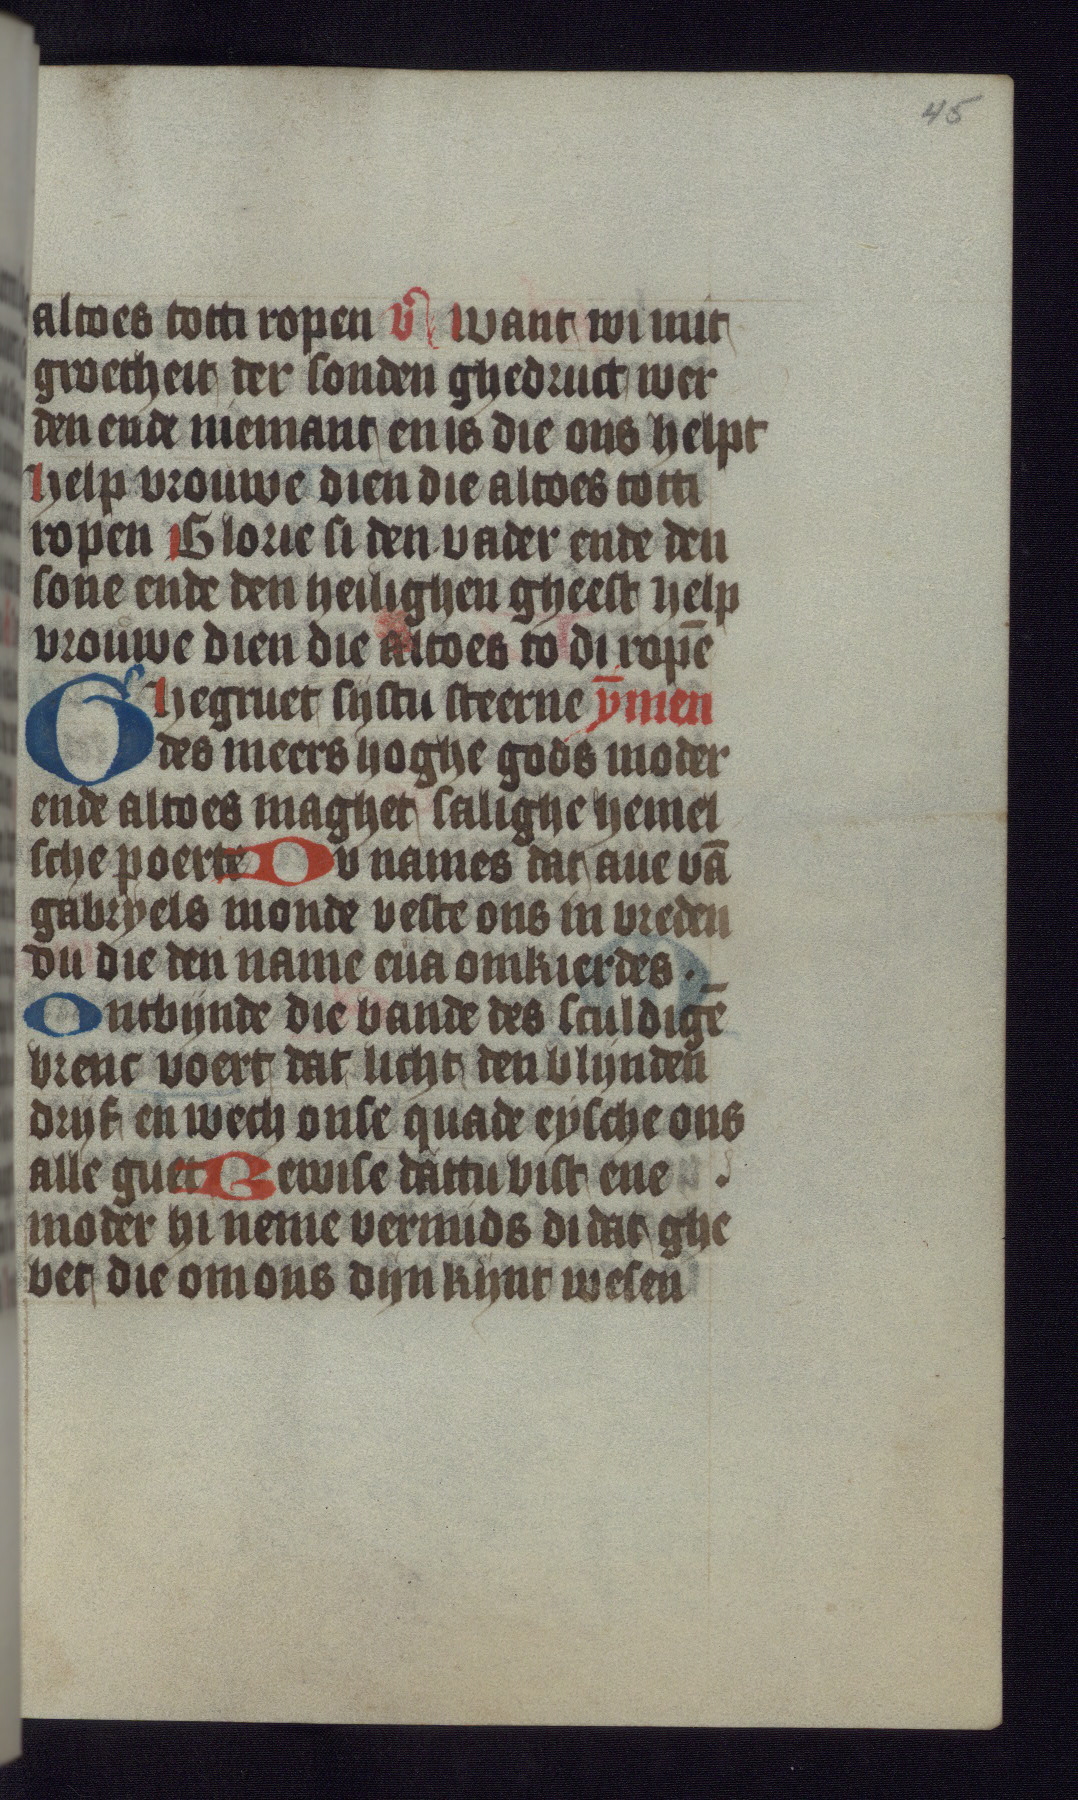 45
altoes totti ropen v̄ Want wi mit
groetheit der sonden ghedruct wer
den ende niemant en is die ons helpt
Help vrouwe dien die altoes totti
ropen Glorie si den vader ende den
sone ende den heilighen gheest help
vrouwe dien die altoes to di ropē
Ghegruet sijstu steerne ȳmen
des meers hoghe gods moder
ende altoes maghet salighe hemel
sche poerte Dv names dat aue vā
gabryels monde veste ons in vreden
du die den name eua omkierdes .
Ontbijnde die bande des sculdigē
brenc voert dat licht den blijnden
drijf en wech onse quade eysche ons
alle guet Bewise dattu bist ene
moder hi neme vermids di dat ghe
bet die om ons dijn kijnt wesen